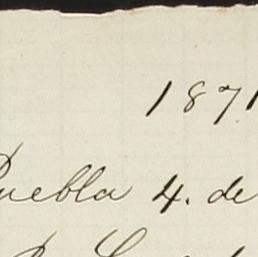 1871
Puebla 4. de